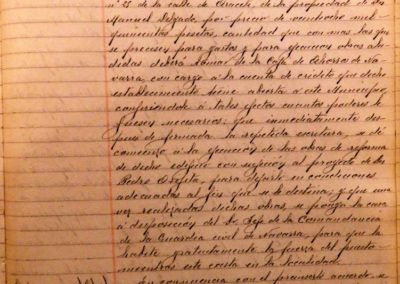 nº 25 de la calle de de la propiedad de Dn
Manuel Delgado por precio de veintiocho mil
quinientas pesetas, cantidad que con mas las que
se precisen para gastos y para ejecución obras alu-
didas deberá tomar de la Caja de Ahorros de Na-
varra, con cargo a la cuenta de crédito que dicho
establecimiento tiene abierta a este Municipio,
confiriendole á tales efectos cuantos poderes le
fuesen necesarios; que inmediatamente des-
pues de firmada la repetida escritura, se dé
comienzo a la ejecución de las obras de reforma
de dicho edificio con sujeción al proyecto de Dn
Pedro para dejarle en condiciones
adecuadas al fin que se le destina; y que una
vez realizadas dichas obras, se ponga la casa
á disposición del Sr. Jefe de la Comandancia
de la Guardia civil de Navarra, para que la
habite gratuitamente la fuerza del puesto
mientras este exista en la localidad.
En consonancia con el presente acuerdo, se